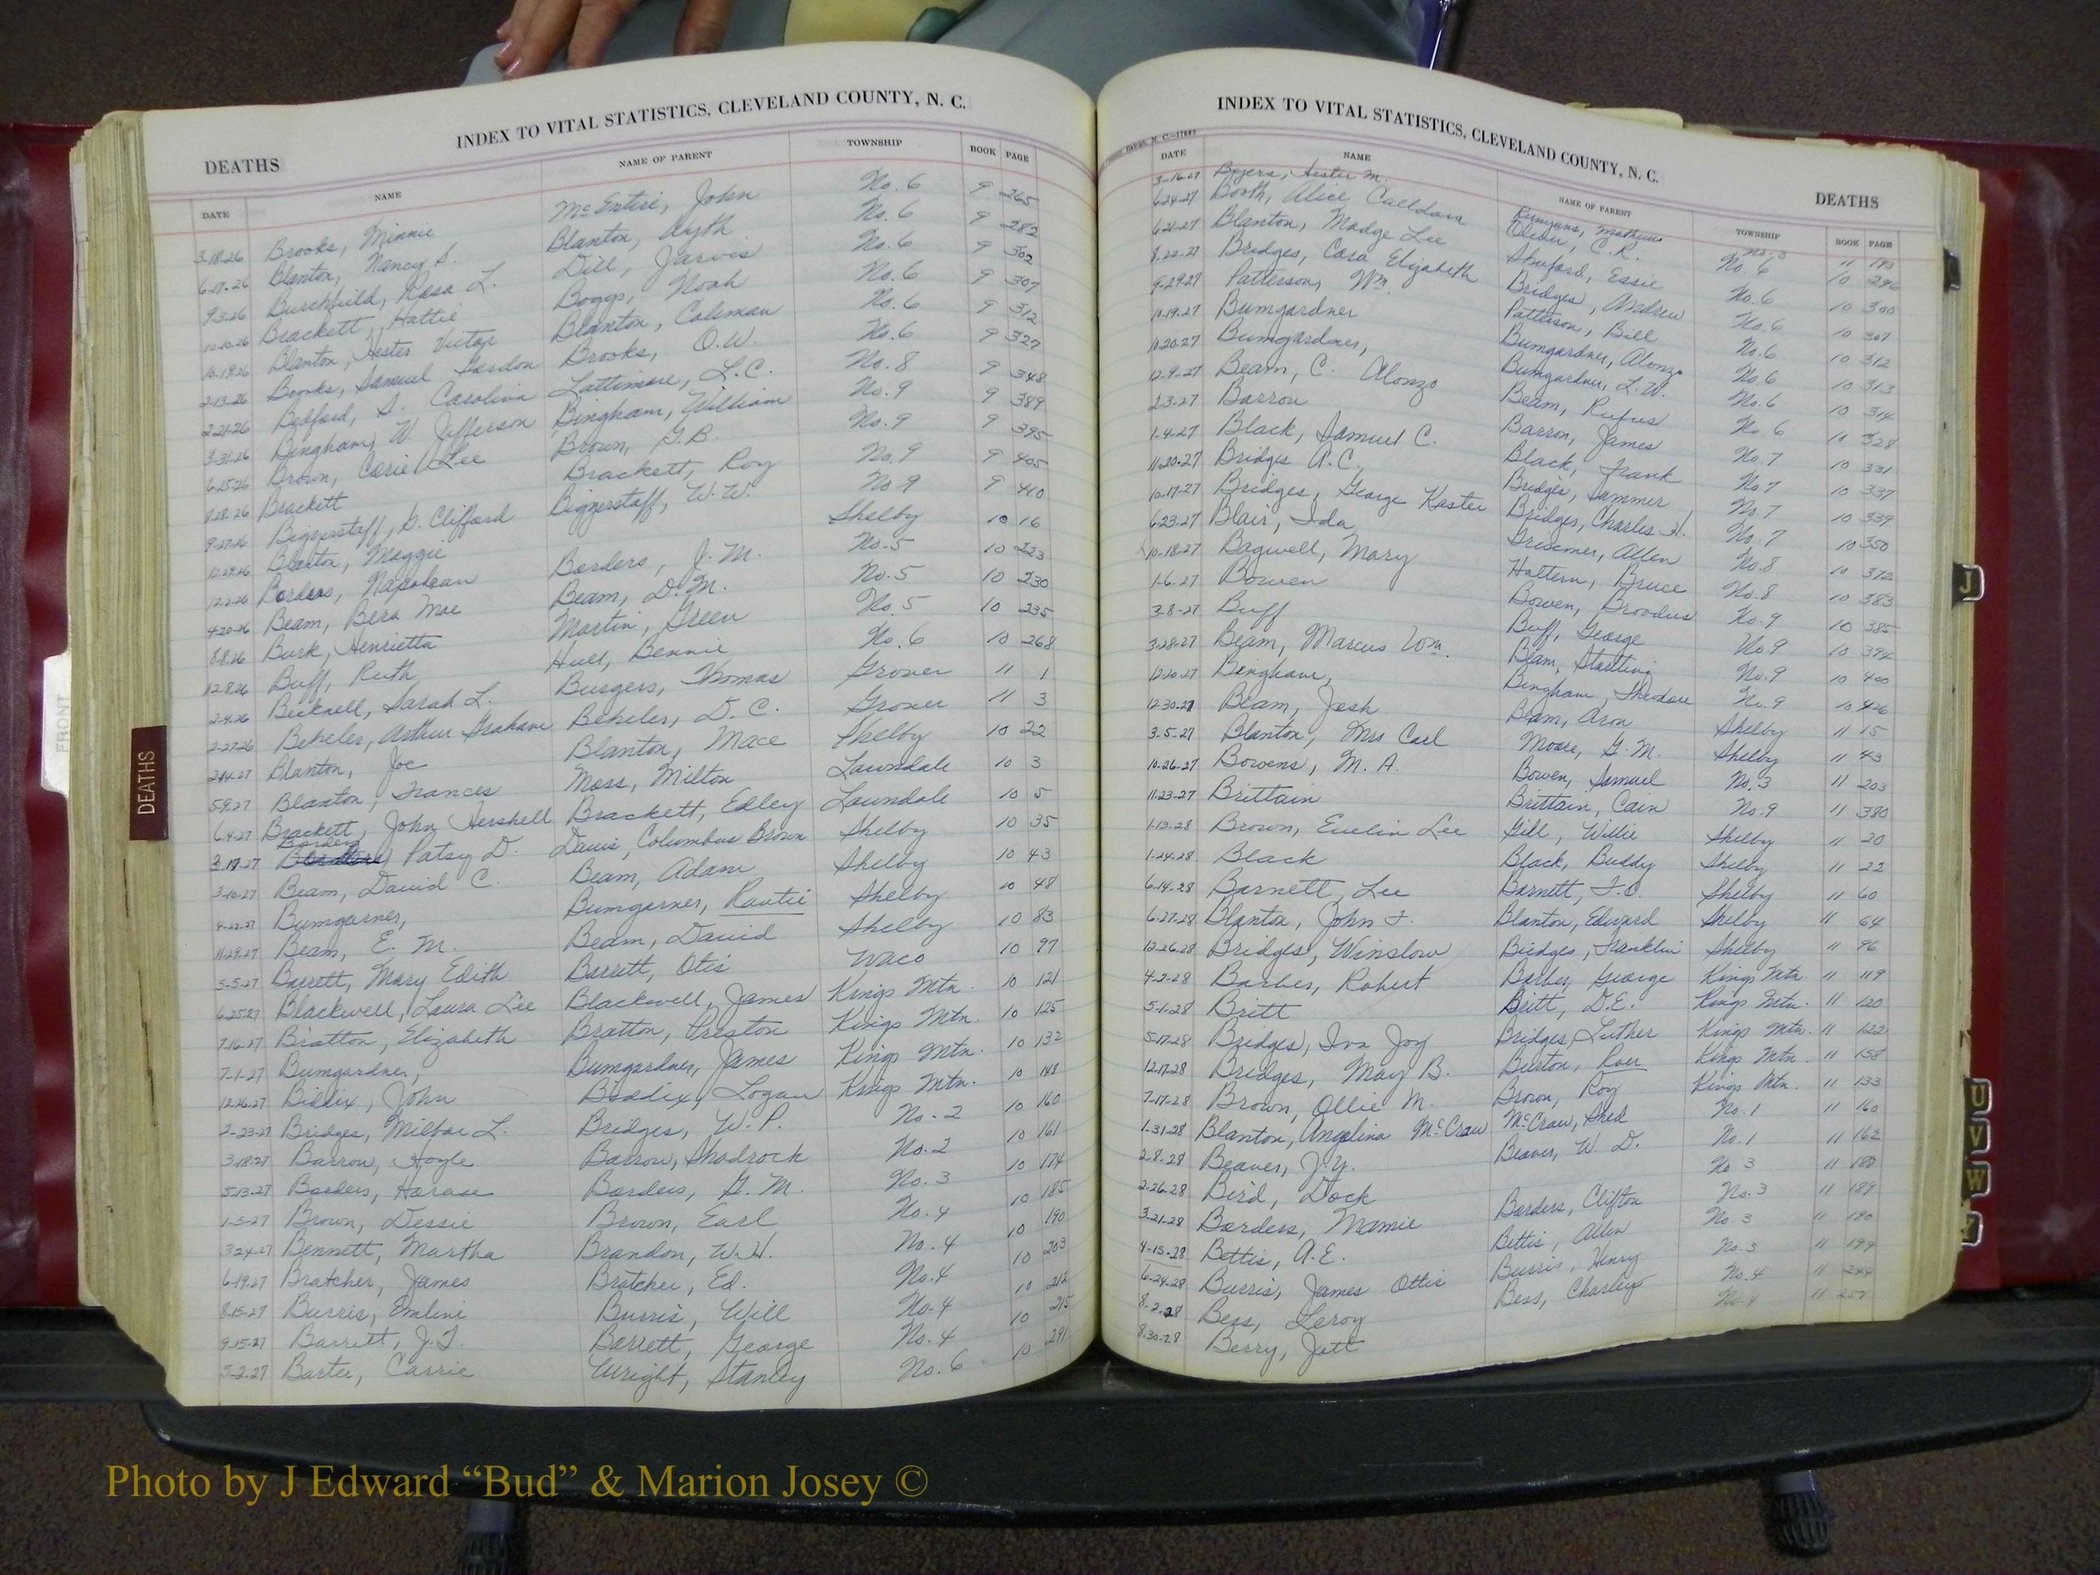 INDEX TO VITAL STATISTICS, CLEVELAND COUNTY, N. C.
DEATHS
DATE NAME NAME OF PARENT TOWNSHIP BOOK PAGE
3-18-26 Brooks, Minnie McEntire, John No. 6 9 265
6-17-26 Blanton, Nancy S. Blanton, No. 6 9 282
9-3-26 Burchfield, Rosa L. Dill, Jarvis No. 6 9 302
10-10-26 Brackett, Hattie Boggs, Noah No. 6 9 307
10-19-26 Blanton, Hester Victor Blanton, Coleman No. 6 9 312
2-13-26 Brooks, Samuel Gordon Brooks, O.W. No. 6 9 327
2-21-26 Bedford, S. Carolina Lattimore, L.C. No. 8 9 348
3-31-26 Bingham, W. Jefferson Bingham, William No. 9 9 389
6-25-26 Brown, Carie Lee Brown, G.B. No. 9 9 395
8-28-26 Brackett Brackett, Roy No. 9 9 405
9-27-26 Biggerstaff, G. Clifford Biggerstaff, W.W. No. 9 9 410
12-29-26 Blanton, Maggie Shelby 10 16
12-2-26 Borders, Napolean Borders, J.M. No. 5 10 223
4-20-26 Beam, Bera Mae Beam, D.M. No. 5 10 230
8-8-26 Burk, Henrietta Martin, Green No. 5 10 235
12-8-26 Buff, Ruth Hull, Bennie No. 6 10 268
2-4-26 Becknell, Sarah L. Burgers, Thomas Grover 11 1
2-27-26 Beheler, Arthur Graham Beheler, D.C. Grover 11 3
2-14-27 Blanton, Joe Blanton, Mace Shelby 10 22
5-9-27 Blanton, Frances Moss, Milton Lawndale 10 3
6-4-27 Brackett, John Hershell Brackett, Edley Lawndale 10 5
3-17-27 Borders Patsy D. Davis, Columbus Brown Shelby 10 35
3-10-27 Beam, David C. Beam, Adam Shelby 10 43
4-22-27 Bumgarner, Bumgarner, Rautie Shelby 10 48
11-29-27 Beam, E. M. Beam, David Shelby 10 83
5-5-27 Barrett, Mary Edith Barrett, Otis Waco 10 97
6-25-27 Blackwell, Laura Lee Blackwell, James Kings Mtn. 10 121
7-16-27 Bratton, Elizabeth Bratton, Preston Kings Mtn. 10 125
7-1-27 Bumgardner, Bumgardner, James Kings Mtn. 10 132
12-26-27 Biddix, John Biddix, Logan Kings Mtn. 10 148
2-23-27 Bridges, Milboe L. Bridges, W.P. No. 2 10 160
3-18-27 Barron, Hoyle Barron, Shadrock No. 2 10 161
5-13-27 Borders, Horase Borders, G.M. No. 3 10 174
1-5-27 Brown, Dessie Brown, Earl No. 4 10 185
3-24-27 Bennett, Martha Brandon, W.H. No. 4 10 190
6-19-27 Bratcher, James Bratcher, Ed. No. 4 10 203
8-15-27 Burris, Emline Burris, Will No. 4 10 212
9-15-27 Barrett, J.T. Barrett, George No. 4 10 215
5-2-27 Bartee, Carrie Wright, Stanley No. 6 10 291
DEATHS
FRONT
INDEX TO VITAL STATISTICS, CLEVELAND COUNTY, N. C.
DEATHS
DATE NAME NAME OF PARENT TOWNSHIP BOOK PAGE
3-16-27 Byers, Hester M. Runyans, Mathews No. 3 11 193
6-24-27 Booth, Alice Calldora Oliver, C.R. No. 6 10 296
6-21-27 Blanton, Madge Lee Shuford, Essie No. 6 10 300
8-22-27 Bridges, Cara Elizabeth Bridges, Andrew No. 6 10 307
9-29-27 Patterson, Wm. Patterson, Bill No. 6 10 312
10-19-27 Bumgardner Bumgardner, Alonzo No. 6 10 313
10-20-27 Bumgardner, Bumgardner, L.W. No. 6 10 314
12-9-27 Beam, C. Alonzo Beam, Rufus No. 6 11 328
2-3-27 Barron Barron, James No. 7 10 331
1-4-27 Black, Samuel C. Black, Frank No. 7 10 337
11-20-27 Bridges A.C. Bridges, Sammer No. 7 10 339
10-17-27 Bridges, George Kaster Bridges, Charles H. No. 7 10 350
6-23-27 Blair, Ida Allen No. 8 10 372
10-18-27 Bagwell, Mary Haltern, Bruce No. 8 10 383
1-6-27 Bowen Bowen, Broadus No. 9 10 385
3-8-27 Buff Buff, George No. 9 10 394
3-28-27 Beam, Marcus Wm. Beam, Startling No. 9 10 400
12-20-27 Bingham, Bingham, Theodore No. 9 10 426
12-30-27 Beam, Josh Beam, Aron Shelby 11 15
3-5-27 Blanton, Mrs Carl Moore, G.M. Shelby 11 43
10-26-27 Bowens, M.A. Bowen, Samuel No. 3 11 203
11-23-27 Brittain Brittain, Cain No. 9 11 380
1-13-28 Brown, Evelin Lee Gill, Willie Shelby 11 20
1-24-28 Black Black, Buddy Shelby 11 22
6-14-28 Barnett, Lee Barnett, T.O. Shelby 11 60
6-27-28 Blanton, John F. Blanton, Edward Shelby 11 64
12-26-28 Bridges, Winslow Bridges, Franklin Shelby 11 96
4-2-28 Barber, Robert Barber, George Kings Mtn. 11 119
5-1-28 Britt Britt, D.E. Kings Mtn. 11 120
5-17-28 Bridges, Iva Joy Bridges, Luther Kings Mtn. 11 122
12-17-28 Bridges, May B. Burton, Kings Mtn. 11 158
7-17-28 Brown, Ollie M. Brown, Roy Kings Mtn. 11 133
1-31-28 Blanton, Angelina McCraw McCraw, Shed No. 1 11 160
2-8-28 Beaver, J.Y. Beaver, W.D. No. 1 11 162
2-26-28 Bird, Dock No 3 11 188
3-21-28 Borders, Mamie Borders, Clifton No. 3 11 189
4-15-28 Bettis, A.E. Bettis, Allen No. 3 11 190
6-24-28 Burris, James Ottis Burris, Henry No. 3 11 199
8-2-28 Bess, Leroy Bess, Charley No. 4 11 244
8-30-28 Berry, Jott No. 4 11 251
J
U
V
W
Photo by J Edward “Bud” & Marion Josey ©